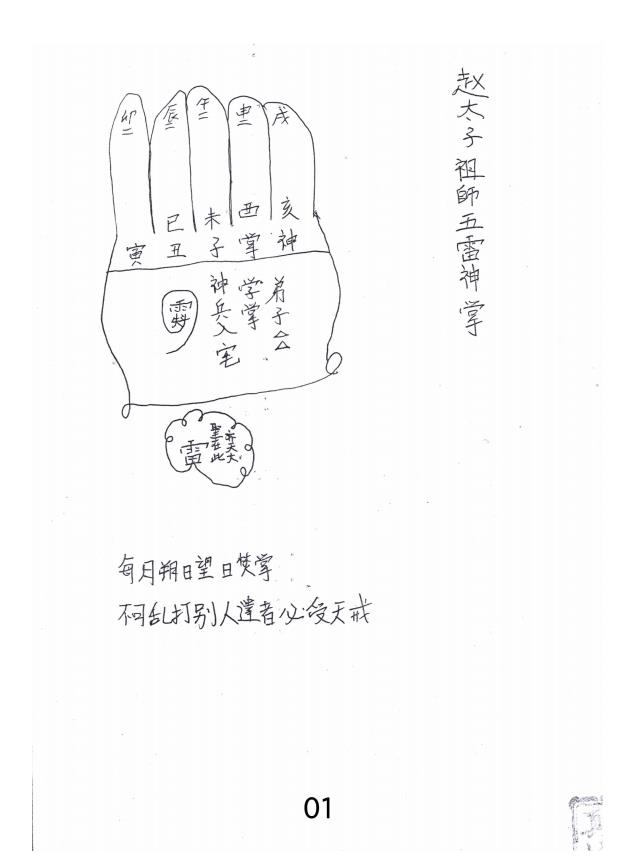 赵太子祖師五雷神掌
卯 辰 午 申 戌
巳 未 酉 亥
寅 丑 子 掌 神
弟子△△
学掌
神兵入宅
雷
每月朔日望日焚掌
不可乱打别人違者必受天戒
01